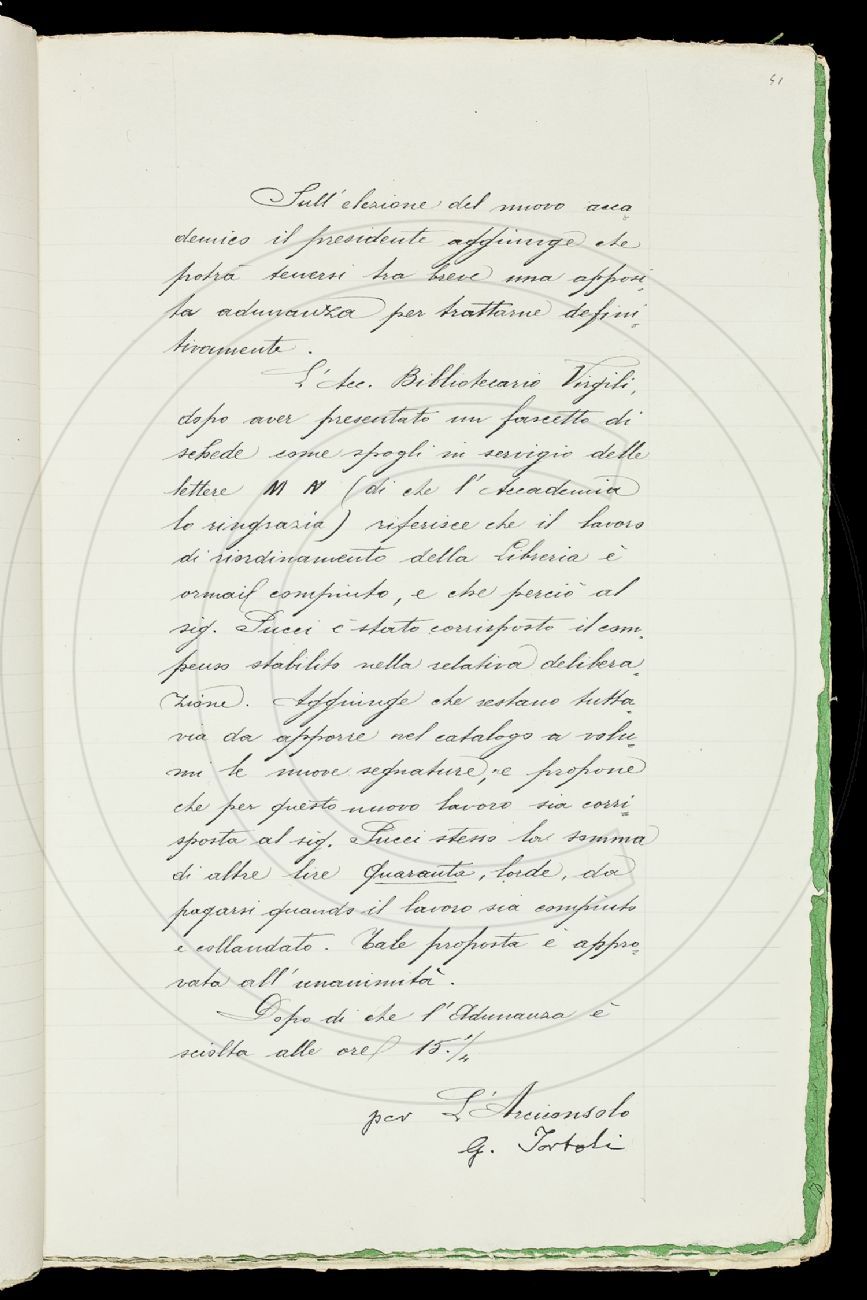 51
Sull'elezione del nuovo acca
demico il presidente aggiunge che
potrà tenersi tra breve una apposi-
ta adunanza per trattarne defini-
tivamente.
L'Acc. Bibliotecario Virgili,
dopo aver presentato un fascetto di
schede come spogli in servigio delle
lettere M N (di che l'Accademia
lo ringrazia) riferisce che il lavoro
di riordinamento della Libreria è
ormai compiuto, e che perciò al
sig. Pucci è stato corrisposto il com-
penso stabilito nella relativa delibera-
zione. Aggiunge che restano tutta-
via da apporre nel catalogo a volu-
mi le nuove segnature, e propone
che per questo nuovo lavoro sia corri-
sposta al sig. Pucci stesso la somma
di altre lire Quaranta, lorde, da
pagarsi quando il lavoro sia compiuto
e collaudato. Tale proposta è appro-
vata all'unanimità.
Dopo di che l'Adunanza è
sciolta alle ore 15.1/4
per L'Arciconsolo
G. Tortoli